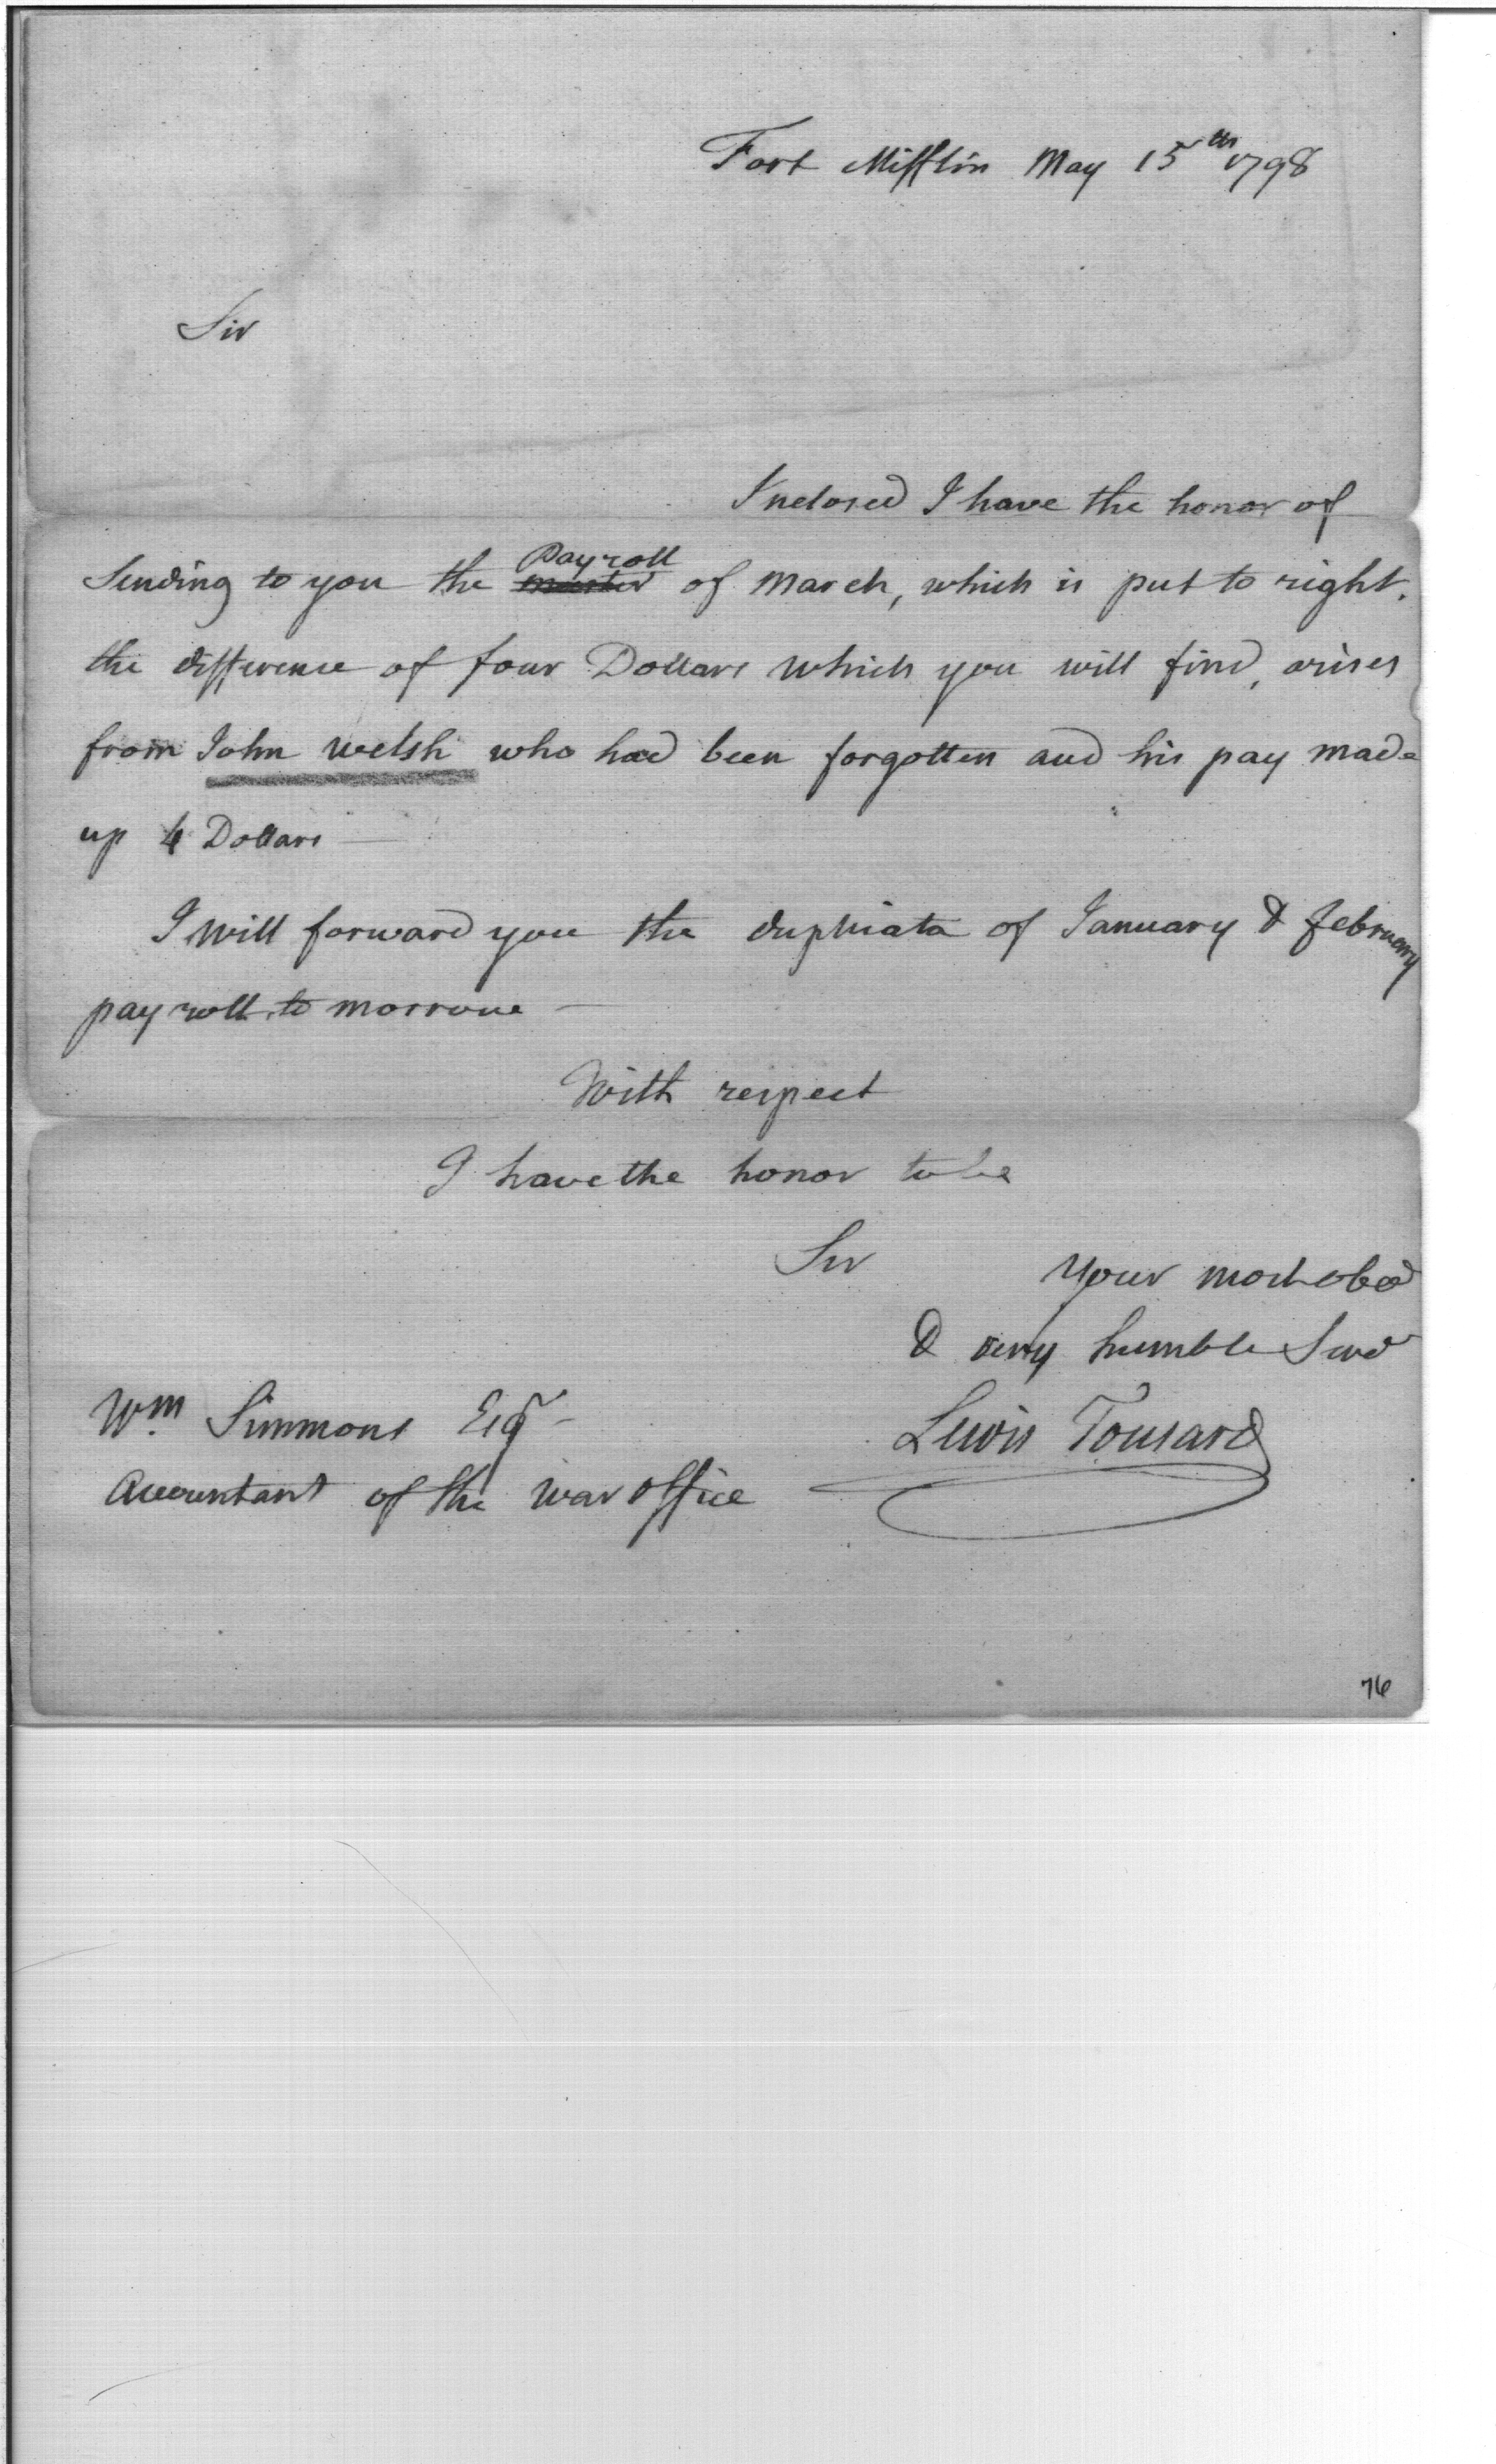 Fort Mifflin May 15th 1798
Sir
Inclosed I have the honor of
Sending to you the Payroll of March, which is put to right.
the difference of four Dollars which you will find, arises
from John Welsh who had been forgotten and his pay made
up 4 Dollars —
I will forward you the duplicata of January & february
pay roll to morrow —
With respect
I have the honor to be
Sir
Your most obed
& very humble Servt
Lewis Tousard
Wm Simmons Esqr
Accountant of the War Office
76